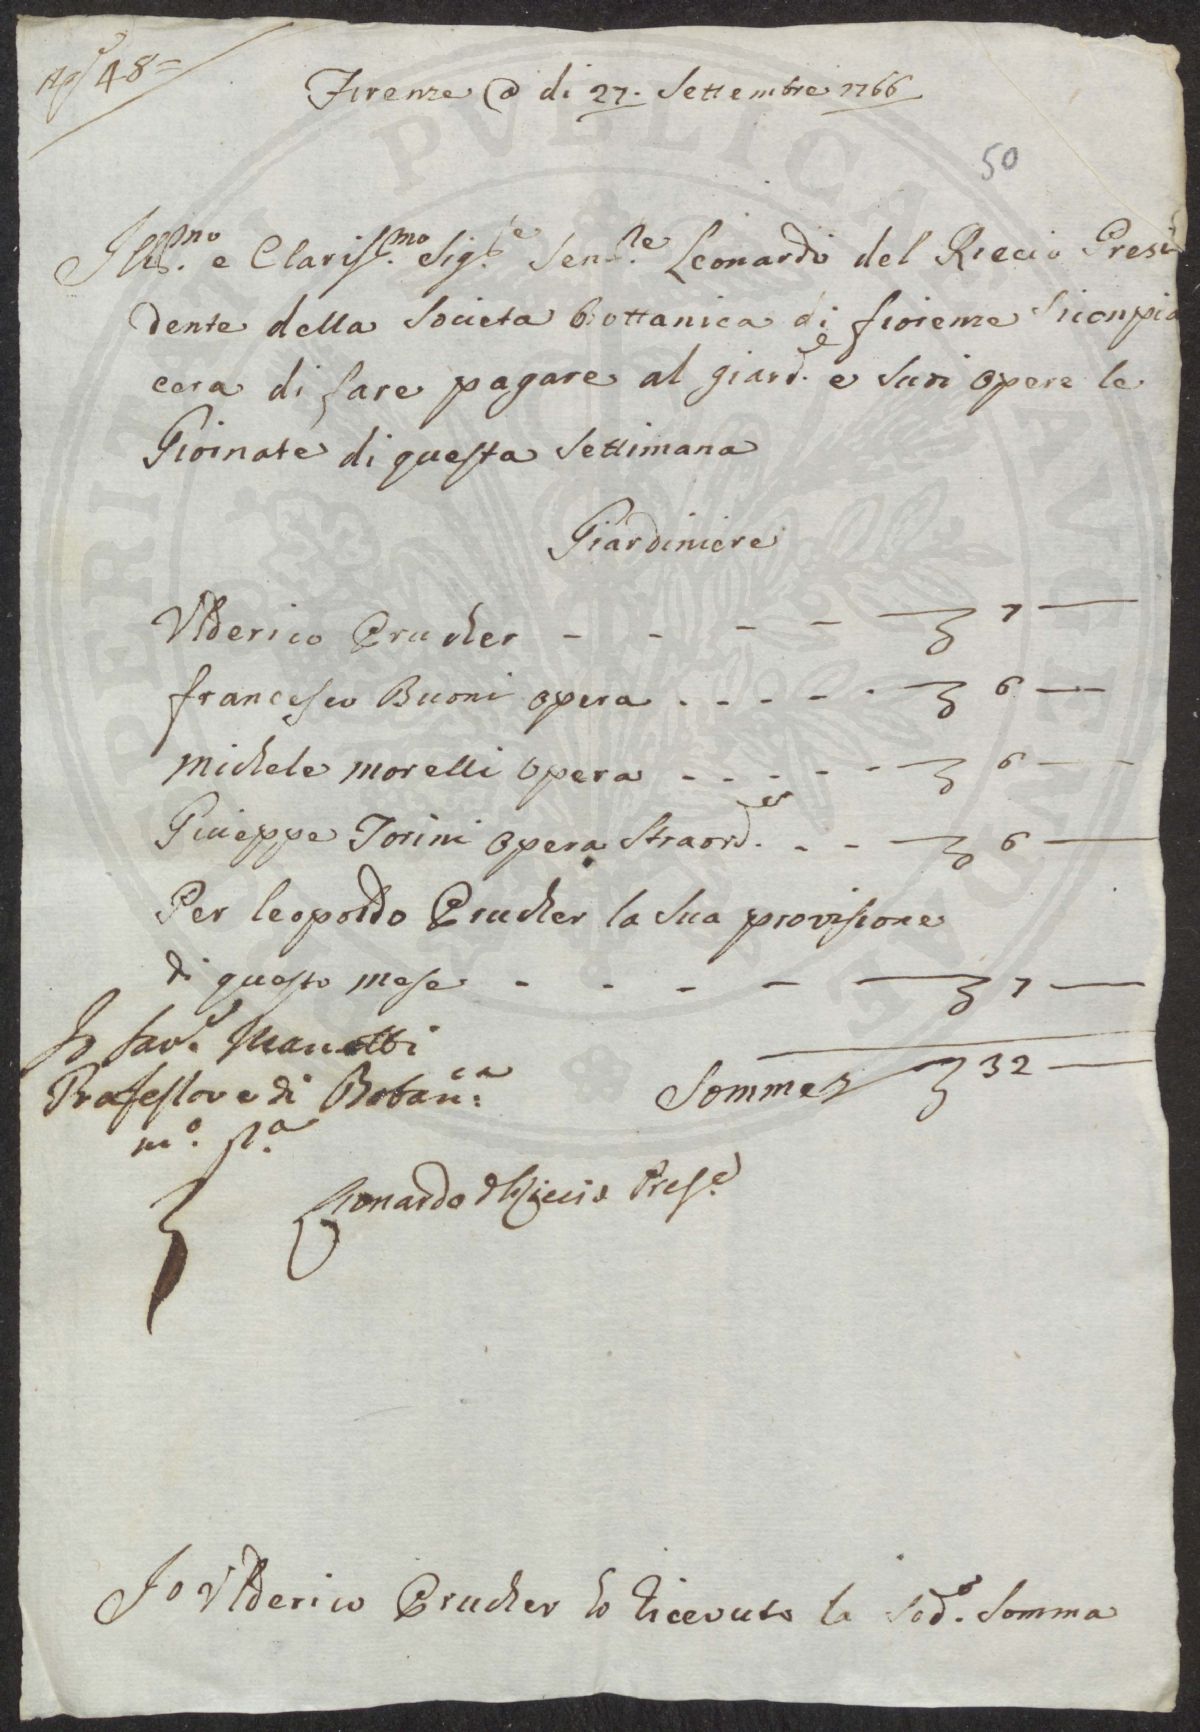 48
Firenze @ di 27. Settembre 1766
50
Ill.mo e Clariss.mo Sig.re Sen.re Leonardo del Riccio Presi
dente della Societa Bottanica di fiorenze Siconpia
cera di fare pagare al giard.e e Suoi opere le
Giornate di questa Settimana
Giardiniere
Vlderico Prucher - - - - 7
francesco Buoni opera . - - - - . 6
Michele Morelli opera - - - - - - 6
Giuseppe Torini opera Straord. - - - 6
Per leopordo Prucher la Sua provisione
di questo Mese - - - - 7
Io Sav. Manetti
Professore di Botan.ca
m.o p.a
Somme 32
Leonardo del Riccio Pres.e
Io Vlderico Prucher ho Ricevuto la Sod.a Somma